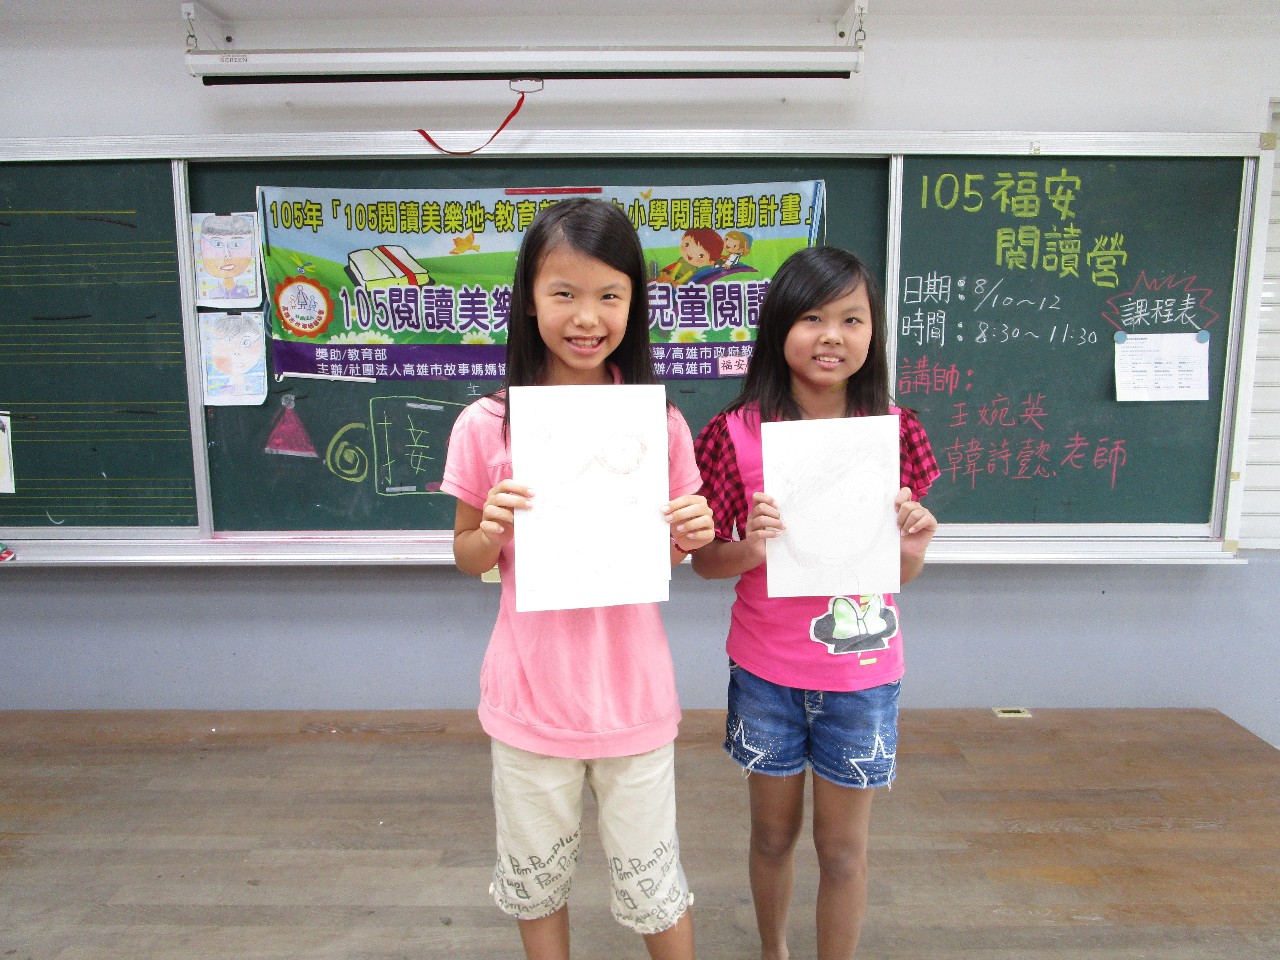 SCREEN
105年「105閱讀美樂地~教育部
小學閱讀推動計畫」
105閱讀美樂
兒童閱讀
獎助/教育部
導/高雄市政府教
主辦/社團法人高雄市故事媽媽協
辦/高雄市
福安
接
105福安
閱讀營
日期:8/10~12
時間:8:30~11:30
課程表
講師:
王婉英
韓詩懿老師
PomPomPlus